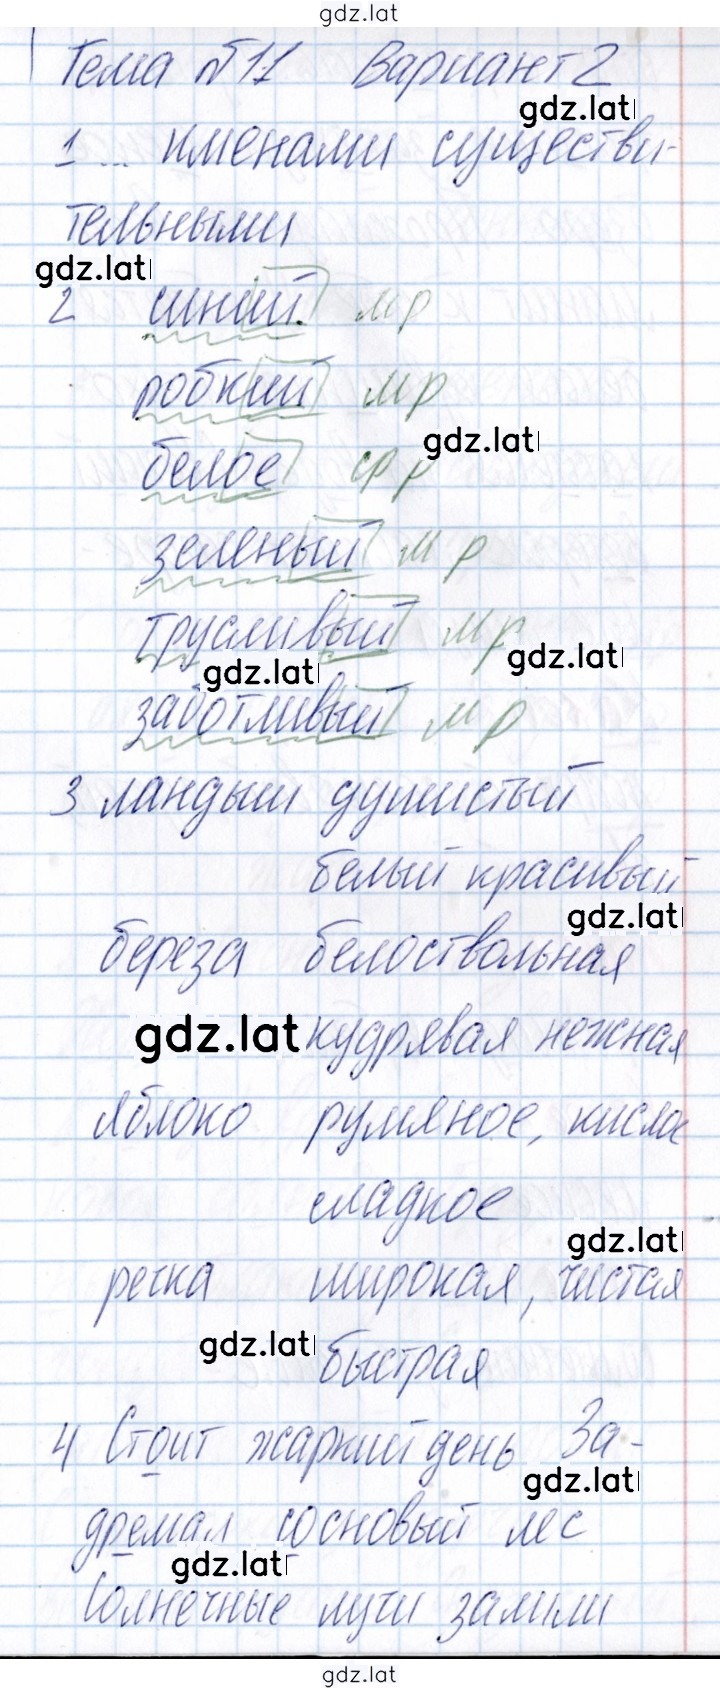 gdz.lat
Тема №11 Вариант 2
gdz.lat
1 ... именами существи-
тельными
gdz.lat
2 синий мр
робкий мр
gdz.lat
белое ср р
зеленый м р
трусливый мр
gdz.lat gdz.lat
заботливый м р
3 ландыш душистый
белый красивый
gdz.lat
береза белоствольная
gdz.lat кудрявая нежная
яблоко румяное, кислое
сладкое
gdz.lat
речка широкая, чистая
gdz.lat быстрая
4 Стоит жаркий день За-
gdz.lat
дремал сосновый лес
gdz.lat
Солнечные лучи залили
gdz.lat